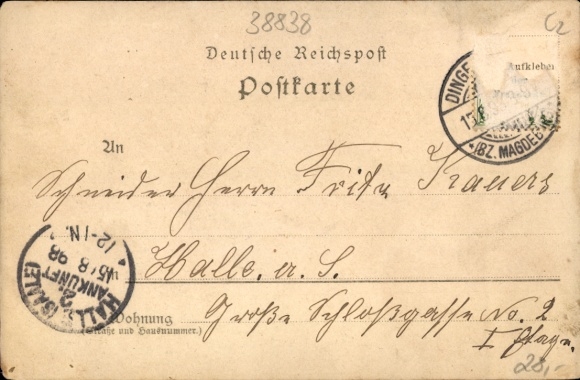 38838
Deutsche Reichspost
Postkarte
Aufkleber
DINGE
15
(BZ. MAGDEB
An
Schneider Herrn Fritz Kauers
Halle a. S.
HALLE (SAALE)
ANKUNFT
15 8 98
12-1N.
2
Wohnung
(Straße und Hausnummer.)
Große Schloßgasse No. 2
I Etage.
28,-